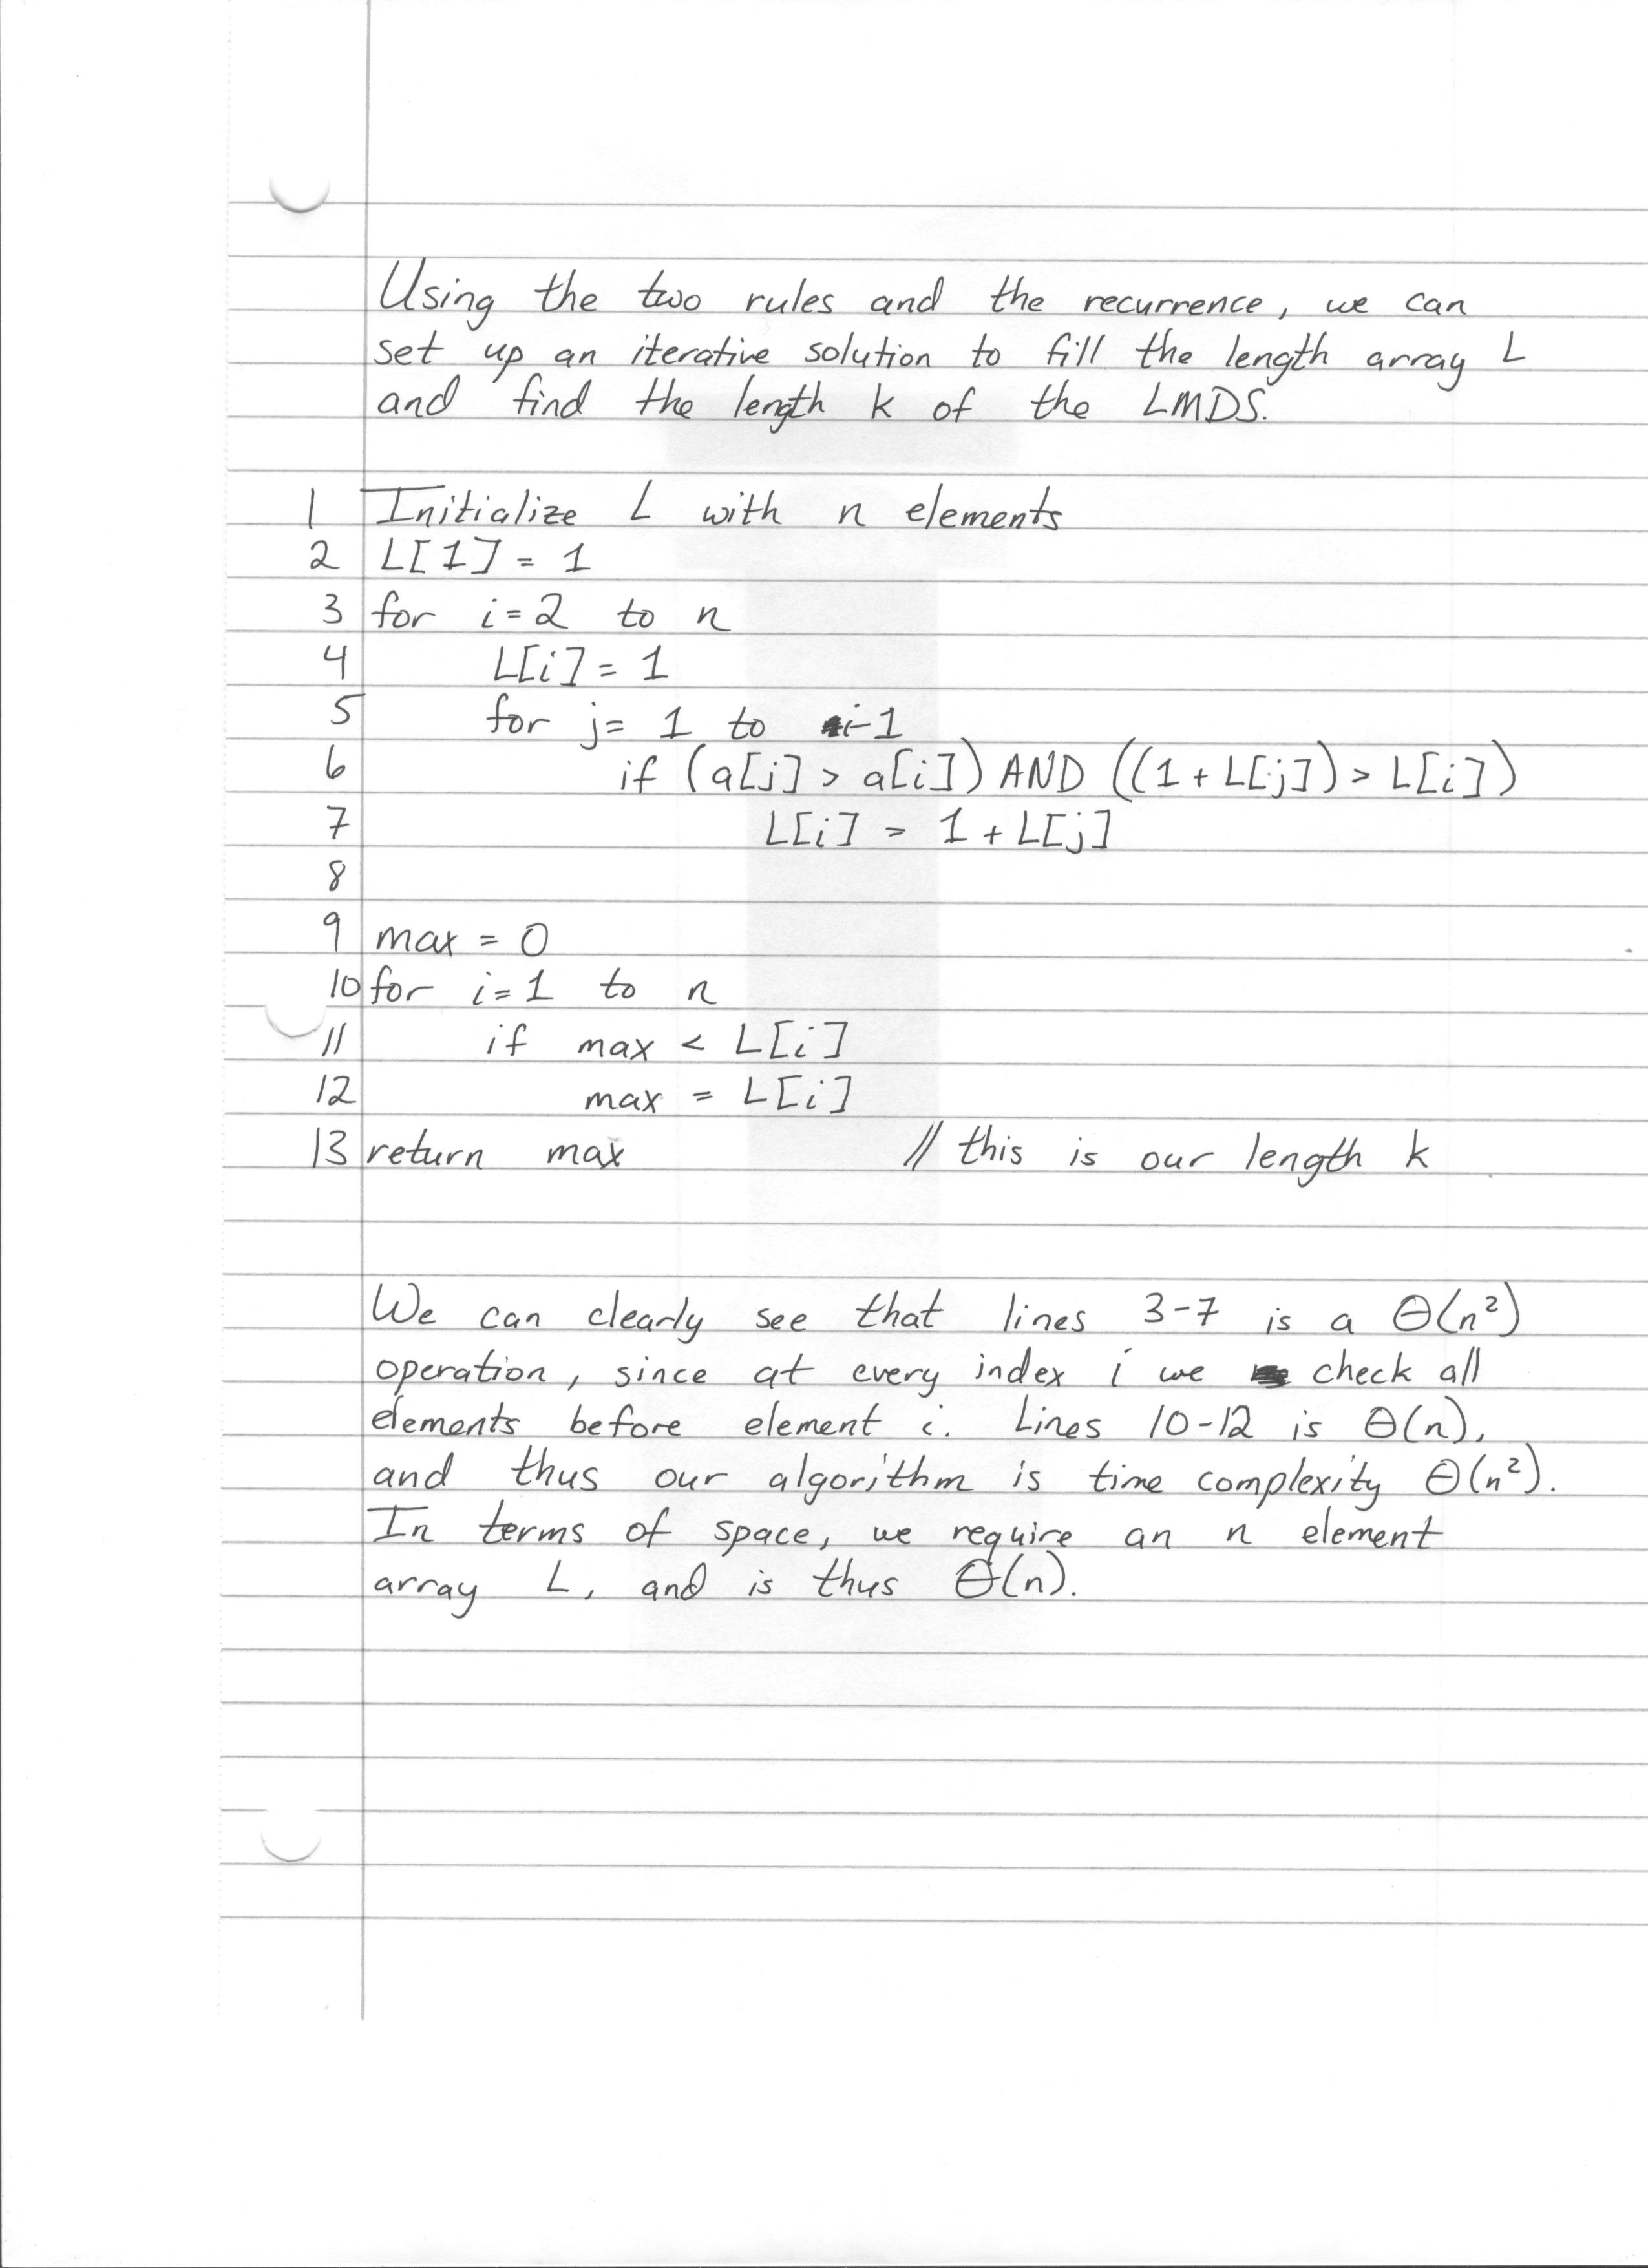 Using the two rules and the recurrence, we can
set up an iterative solution to fill the length array L
and find the length k of the LMDS.
1 Initialize L with n elements
2 L[1] = 1
3 for i=2 to n
4 L[i] = 1
5 for j= 1 to i-1
6 if (a[j] > a[i]) AND ((1 + L[j]) > L[i])
7 L[i] = 1 + L[j]
8
9 max = 0
10 for i=1 to n
11 if max < L[i]
12 max = L[i]
13 return max // this is our length k
We can clearly see that lines 3-7 is a Θ(n²)
operation, since at every index i we check all
elements before element i. Lines 10-12 is Θ(n),
and thus our algorithm is time complexity Θ(n²).
In terms of space, we require an n element
array L, and is thus Θ(n).